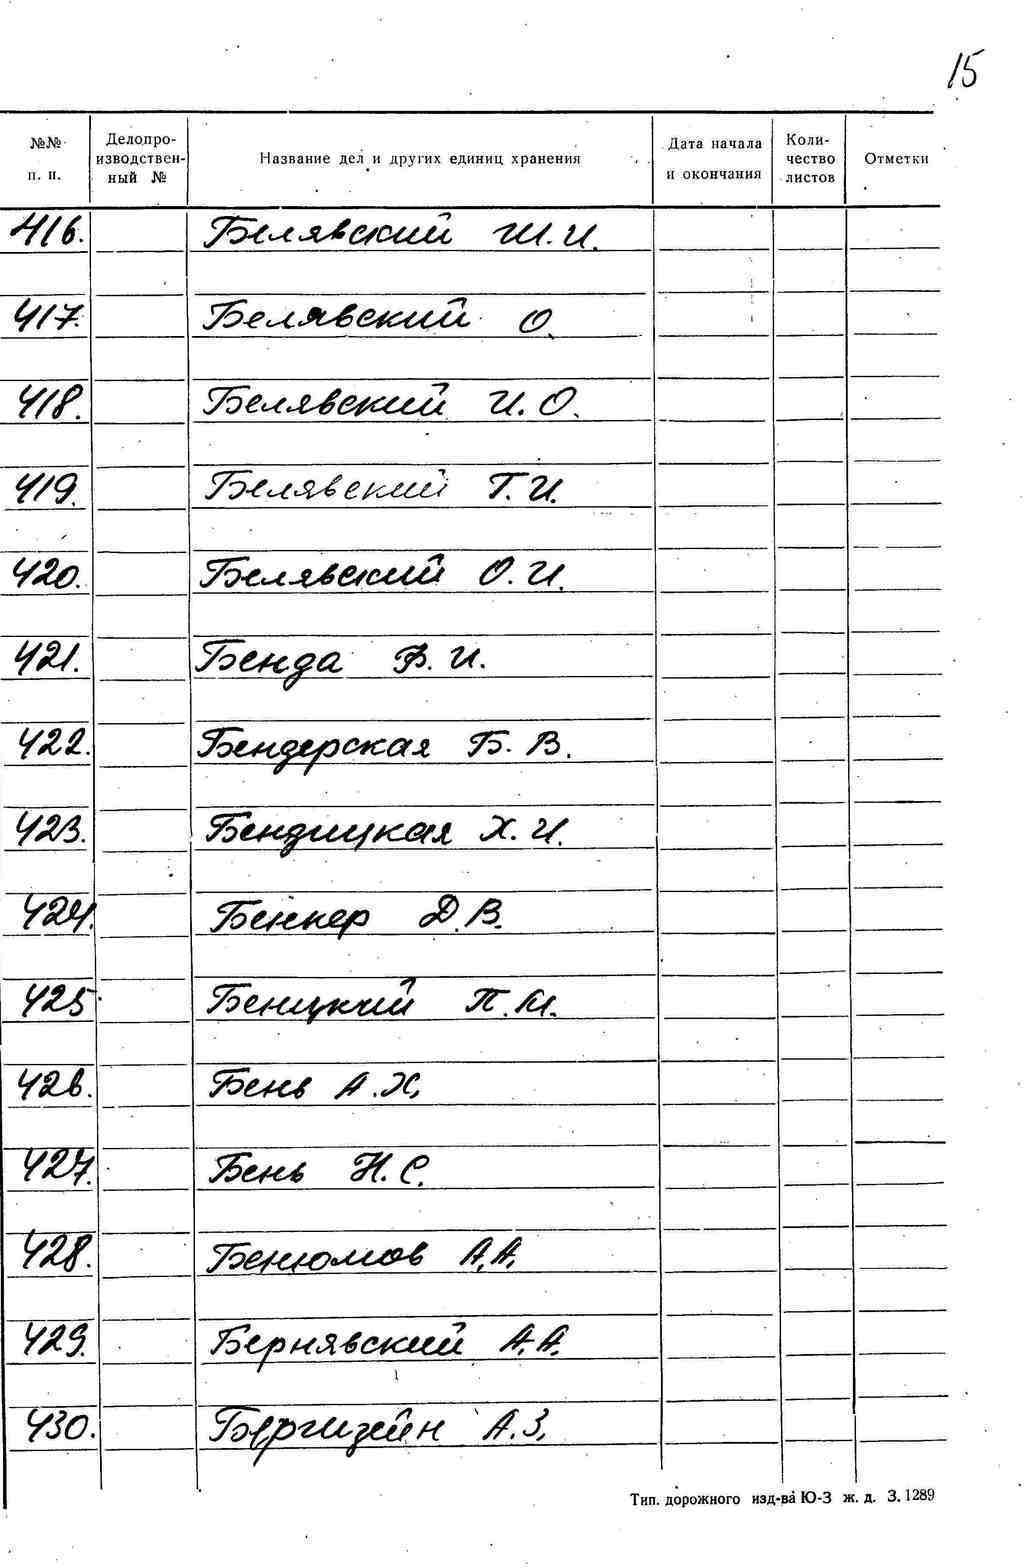 15
№№ п. п. Делопроизводственный № Название дел и других единиц хранения Дата начала и окончания Количество листов Отметки
416. Белявский Ш. И.
417. Белявский О.
418. Белявский И. О.
419. Белявский Г. И.
420. Белявский О. И.
421. Бенда В. И.
422. Бендерская Б. В.
423. Бендицкая Х. И.
424. Бенкер Д. В.
425. Беницкий П. М.
426. Бень А. Х.
427. Бень Н. С.
428. Бенюмов А. А.
429. Бернявский А. А.
430. Бергизейн А. З.
Тип. дорожного изд-ва Ю-З ж. д. З. 1289